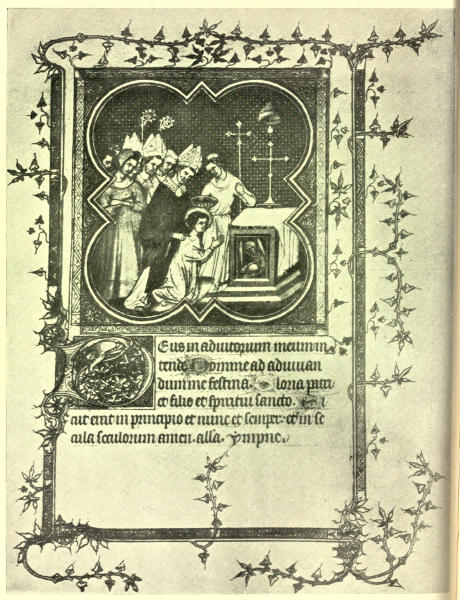 Deus in adiutorium meum in
tende Domine ad adiuvan
dum me festina. Gloria patri
et filio et spiritui sancto. Si
cut erat in principio et nunc et semper. et in se
cula seculorum amen. alla. ympne.